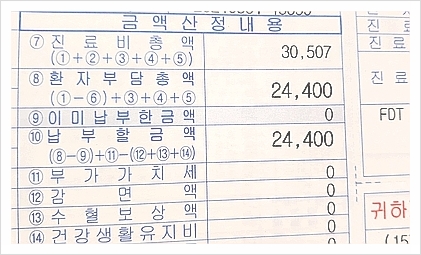 금액산정내용
⑦ 진료비총액
(①+②+③+④+⑤)
30,507
⑧ 환자부담총액
(①-⑥)+③+④+⑤
24,400
⑨ 이미납부한금액
0
⑩ 납부할금액
(⑧-⑨)+⑪-(⑫+⑬+⑭)
24,400
⑪ 부가가치세
0
⑫ 감면액
0
⑬ 수혈보상액
0
⑭ 건강생활유지비
0
진료
진료
진료
FDT
귀하
(15